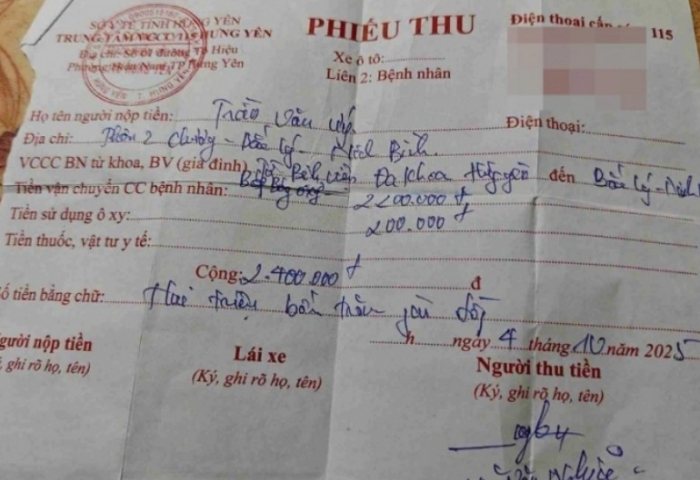 SỞ Y TẾ TỈNH HƯNG YÊN
TRUNG TÂM VCCC 115 HƯNG YÊN
Địa chỉ: Số 01 đường Tô Hiệu
Phường Hiến Nam, TP Hưng Yên
PHIẾU THU
Xe ô tô:
Liên 2: Bệnh nhân
Điện thoại cấp 115
Họ tên người nộp tiền: Trần Văn Điện thoại:
Địa chỉ: 2 - Bắc Lý - Ninh Bình
VCCC BN từ khoa, BV (gia đình) Bệnh viện Đa khoa Hưng Yên đến Bắc Lý - Ninh
Tiền vận chuyển CC bệnh nhân: 2200.000 đ
Tiền sử dụng ô xy: 200.000 đ
Tiền thuốc, vật tư y tế:
Cộng: 2.400.000 đ đ
Số tiền bằng chữ: Hai triệu bốn trăm đồng
h ngày 4 tháng 10 năm 2025
gười nộp tiền
, ghi rõ họ, tên)
Lái xe
(Ký, ghi rõ họ, tên)
Người thu tiền
(Ký, ghi rõ họ, tên)